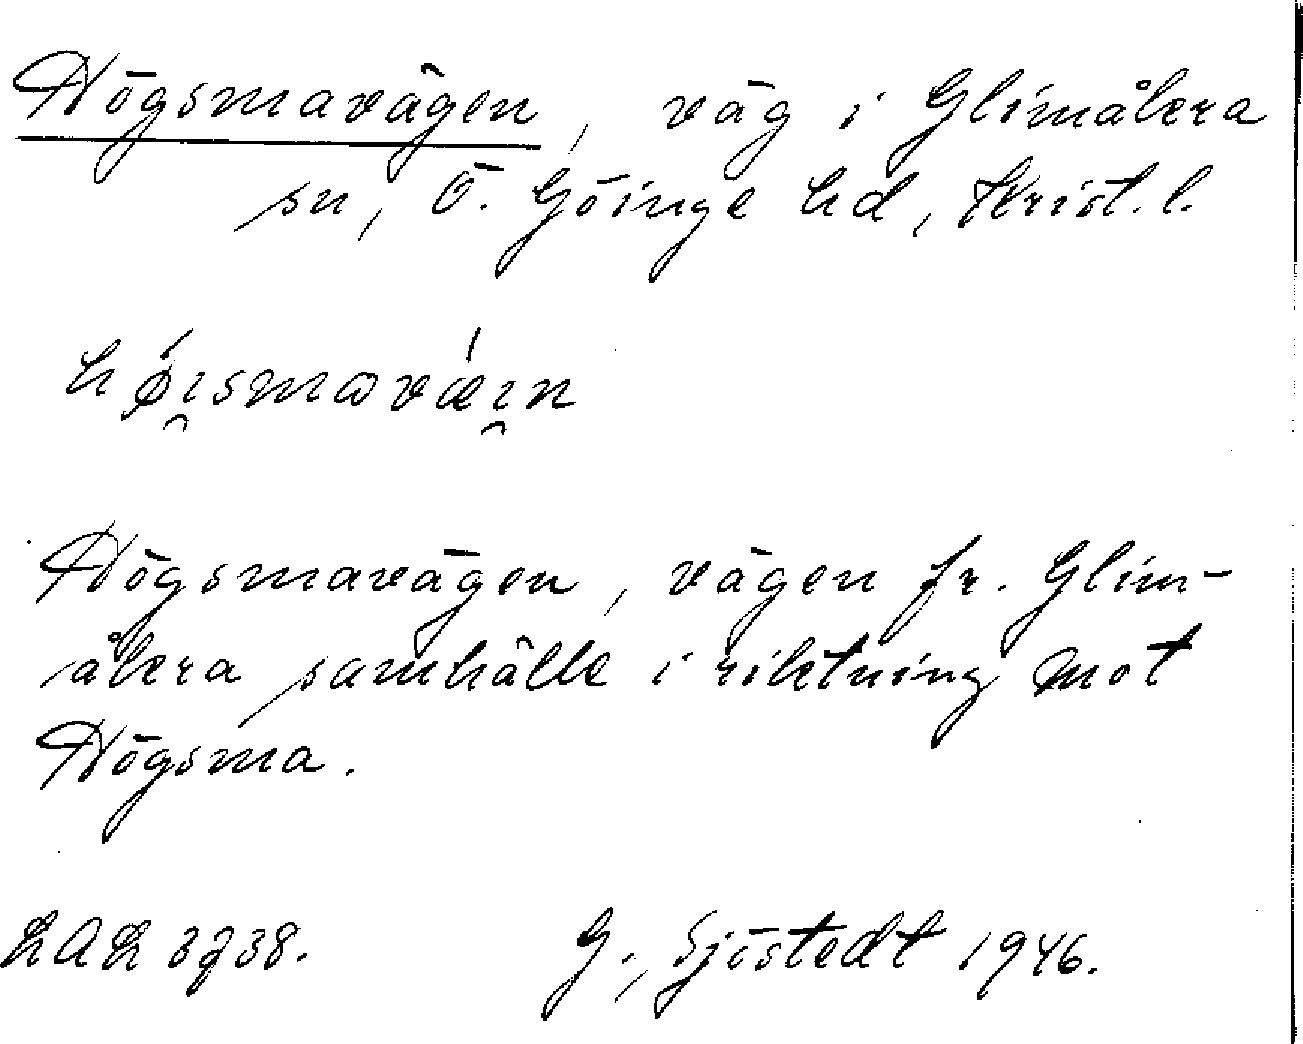 Högsmavägen, väg i Glimåkra
sn, Ö. Göinge hd, Krist. l.
hø̂ısmavæ̂ın
Högsmavägen, vägen fr. Glim-
åkra samhälle i riktning mot
Högsma.
G. Sjöstedt 1946.